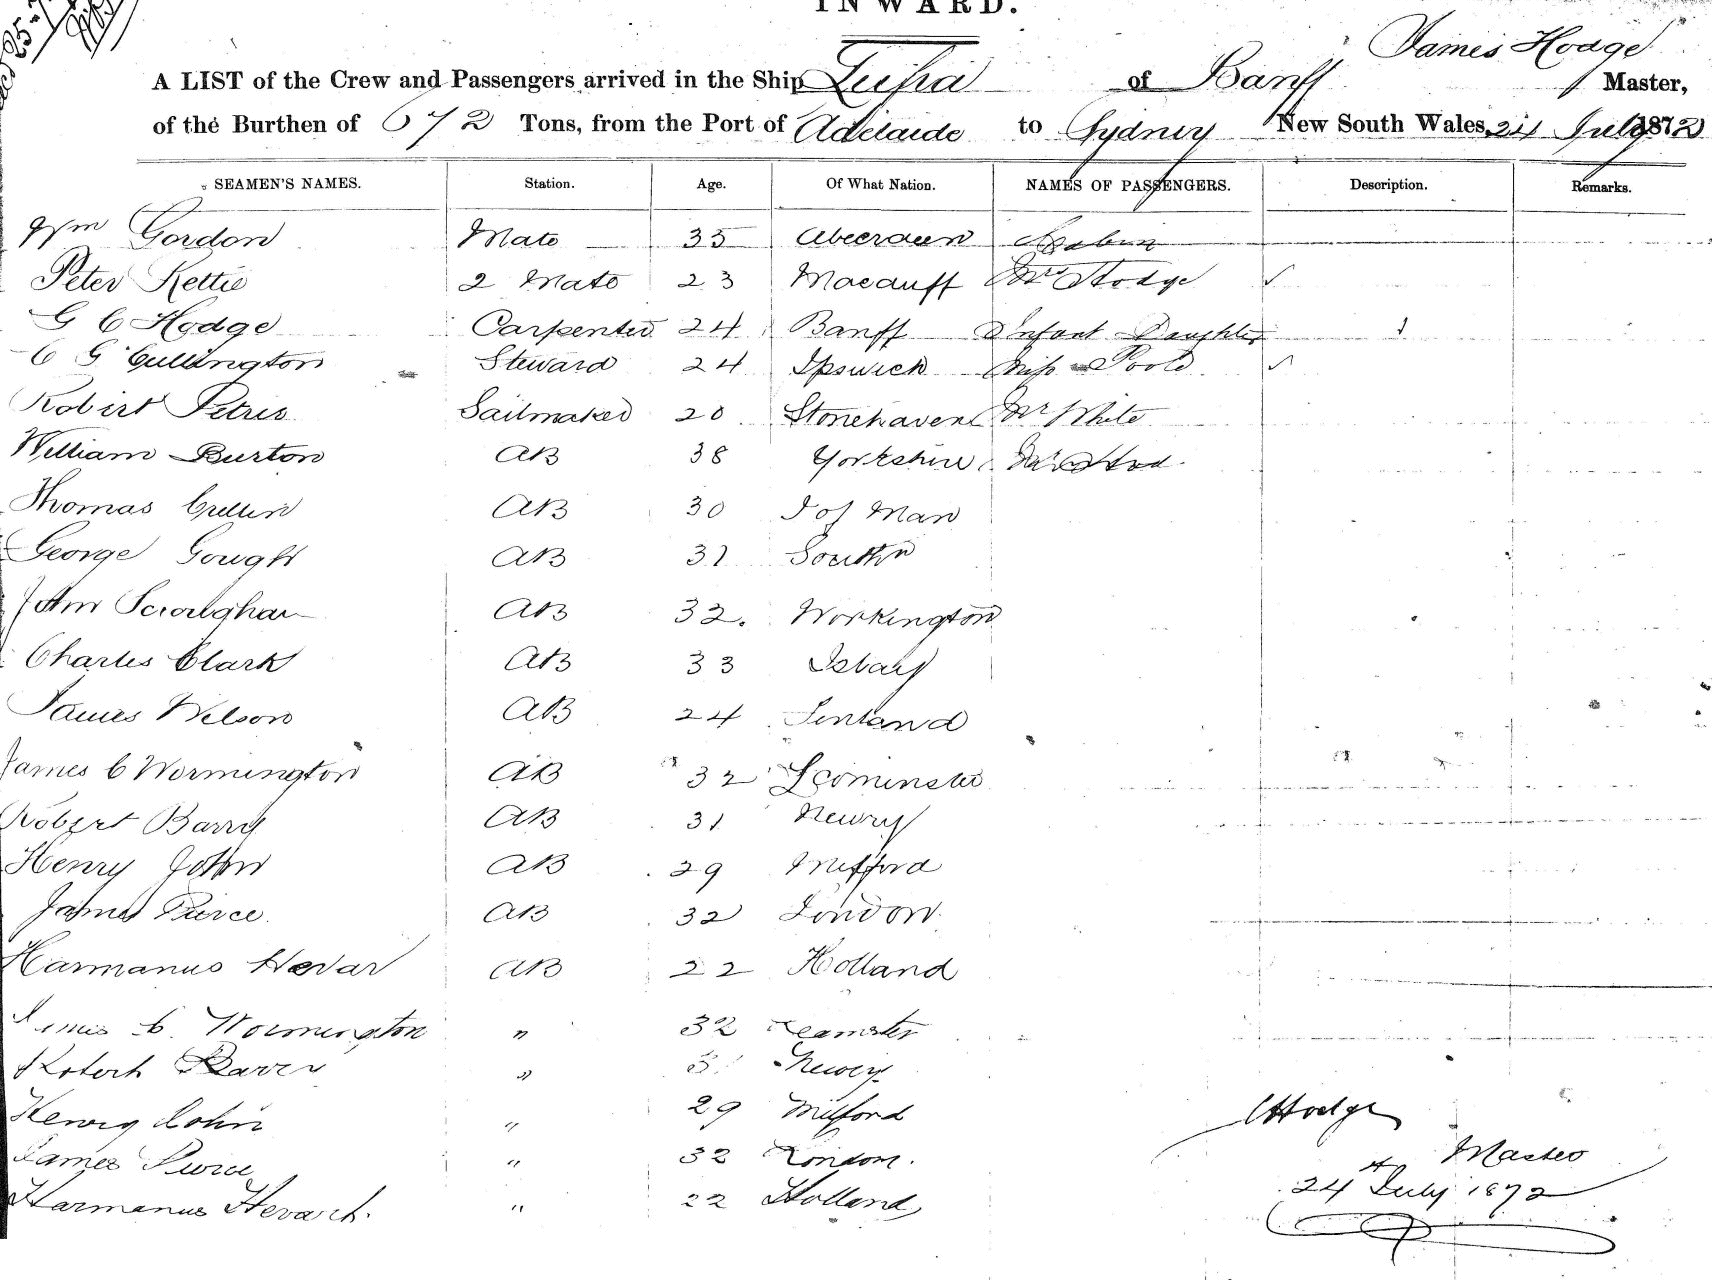 INWARD.
James Hodge
A LIST of the Crew and Passengers arrived in the Ship of Banff Master,
of the Burthen of 672 Tons, from the Port of Adelaide to Sydney New South Wales, 24 July 1872
SEAMEN'S NAMES. Station. Age. Of What Nation. NAMES OF PASSENGERS. Description. Remarks.
Wm Gordon Mate 35 Aberdeen Cabin
Peter Kettie 2 Mate 23 Macduff Mrs Hodge ✓
G C Hodge Carpenter 24 Banff Infant Daughter
C G Cullington Steward 24 Ipswich Miss Poole ✓
Robert Petrie Sailmaker 20 Stonehaven Mr White
William Burton AB 38 Yorkshire
Thomas Cullin AB 30 I of Man
George Gough AB 31
John Scroughan AB 32. Workington
Charles Clark AB 33
James Wilson AB 24 Finland
James C Wormington AB 32 Leominster
Robert Barry AB 31 Newry
Henry John AB 29 Milford
James Pierce AB 32 London
Harmanus Hevar AB 22 Holland
James C. Wormington " 32
Robert " Newry
Henry " 29 Milford
James Pierce " 32 London.
Harmanus " 22 Holland
Hodge
Master
24 July 1872